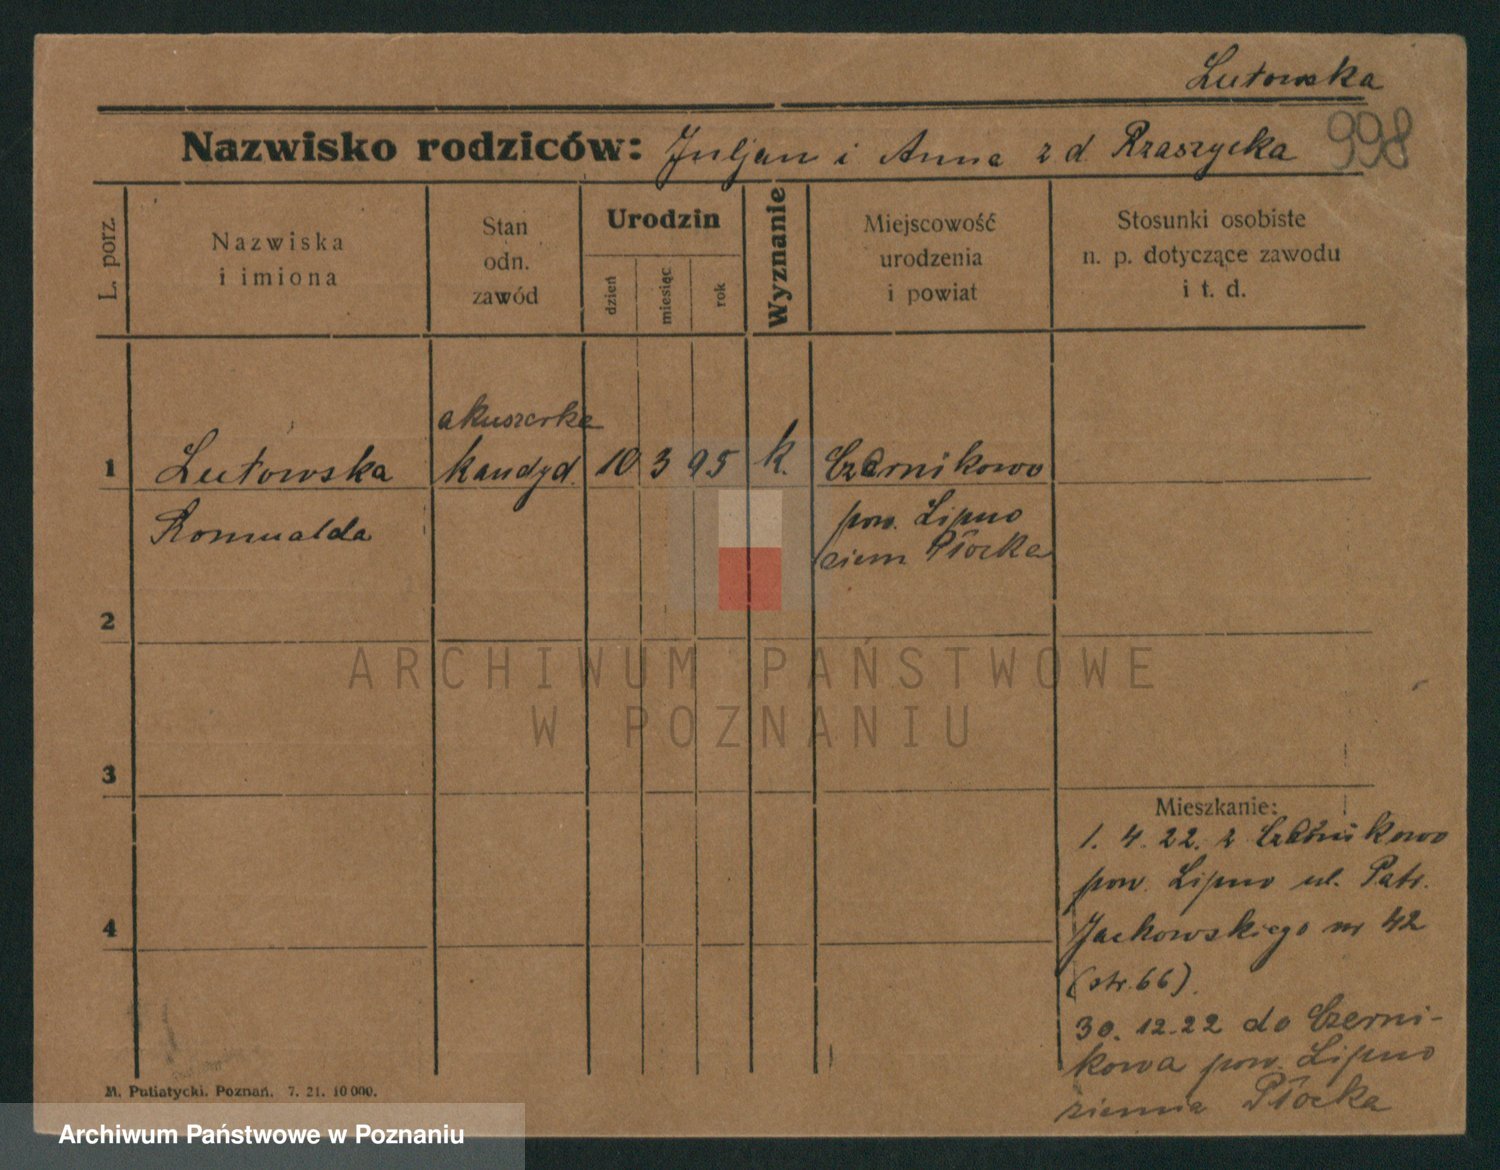 Lutowska
Nazwisko rodziców: Juljan i Anna z d. Rzaszycka 998
L. porz.
Nazwiska
i imiona
Stan
odn.
zawód
Urodzin
dzień
miesiąc
rok
Wyznanie
Miejscowość
urodzenia
i powiat
Stosunki osobiste
n. p. dotyczące zawodu
i t. d.
akuszerka
1 Lutowska kandyd. 10 3 95 k. Czernikowo
Romualda pow. Lipno
ziem Płocka
2
ARCHIWUM PAŃSTWOWE
W POZNANIU
3
Mieszkanie:
1. 4. 22. z Czernikowo
pow. Lipno ul. Patr.
4 Jackowskiego nr 42
(str. 66).
30. 12. 22 do Czerni-
kowa pow. Lipno
ziemia Płocka
M. Putiatycki. Poznań. 7. 21. 10 000.
Archiwum Państwowe w Poznaniu